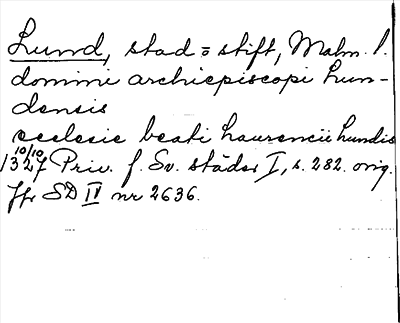 Lund, stad o stift, Malm. l.
domini archiepiscopi Lun-
densis
ecclesie beati Laurencii Lundis
10/10
1327 Priv. f. Sv. städer I, s. 282. orig.
Jfr SD IV nr 2636.